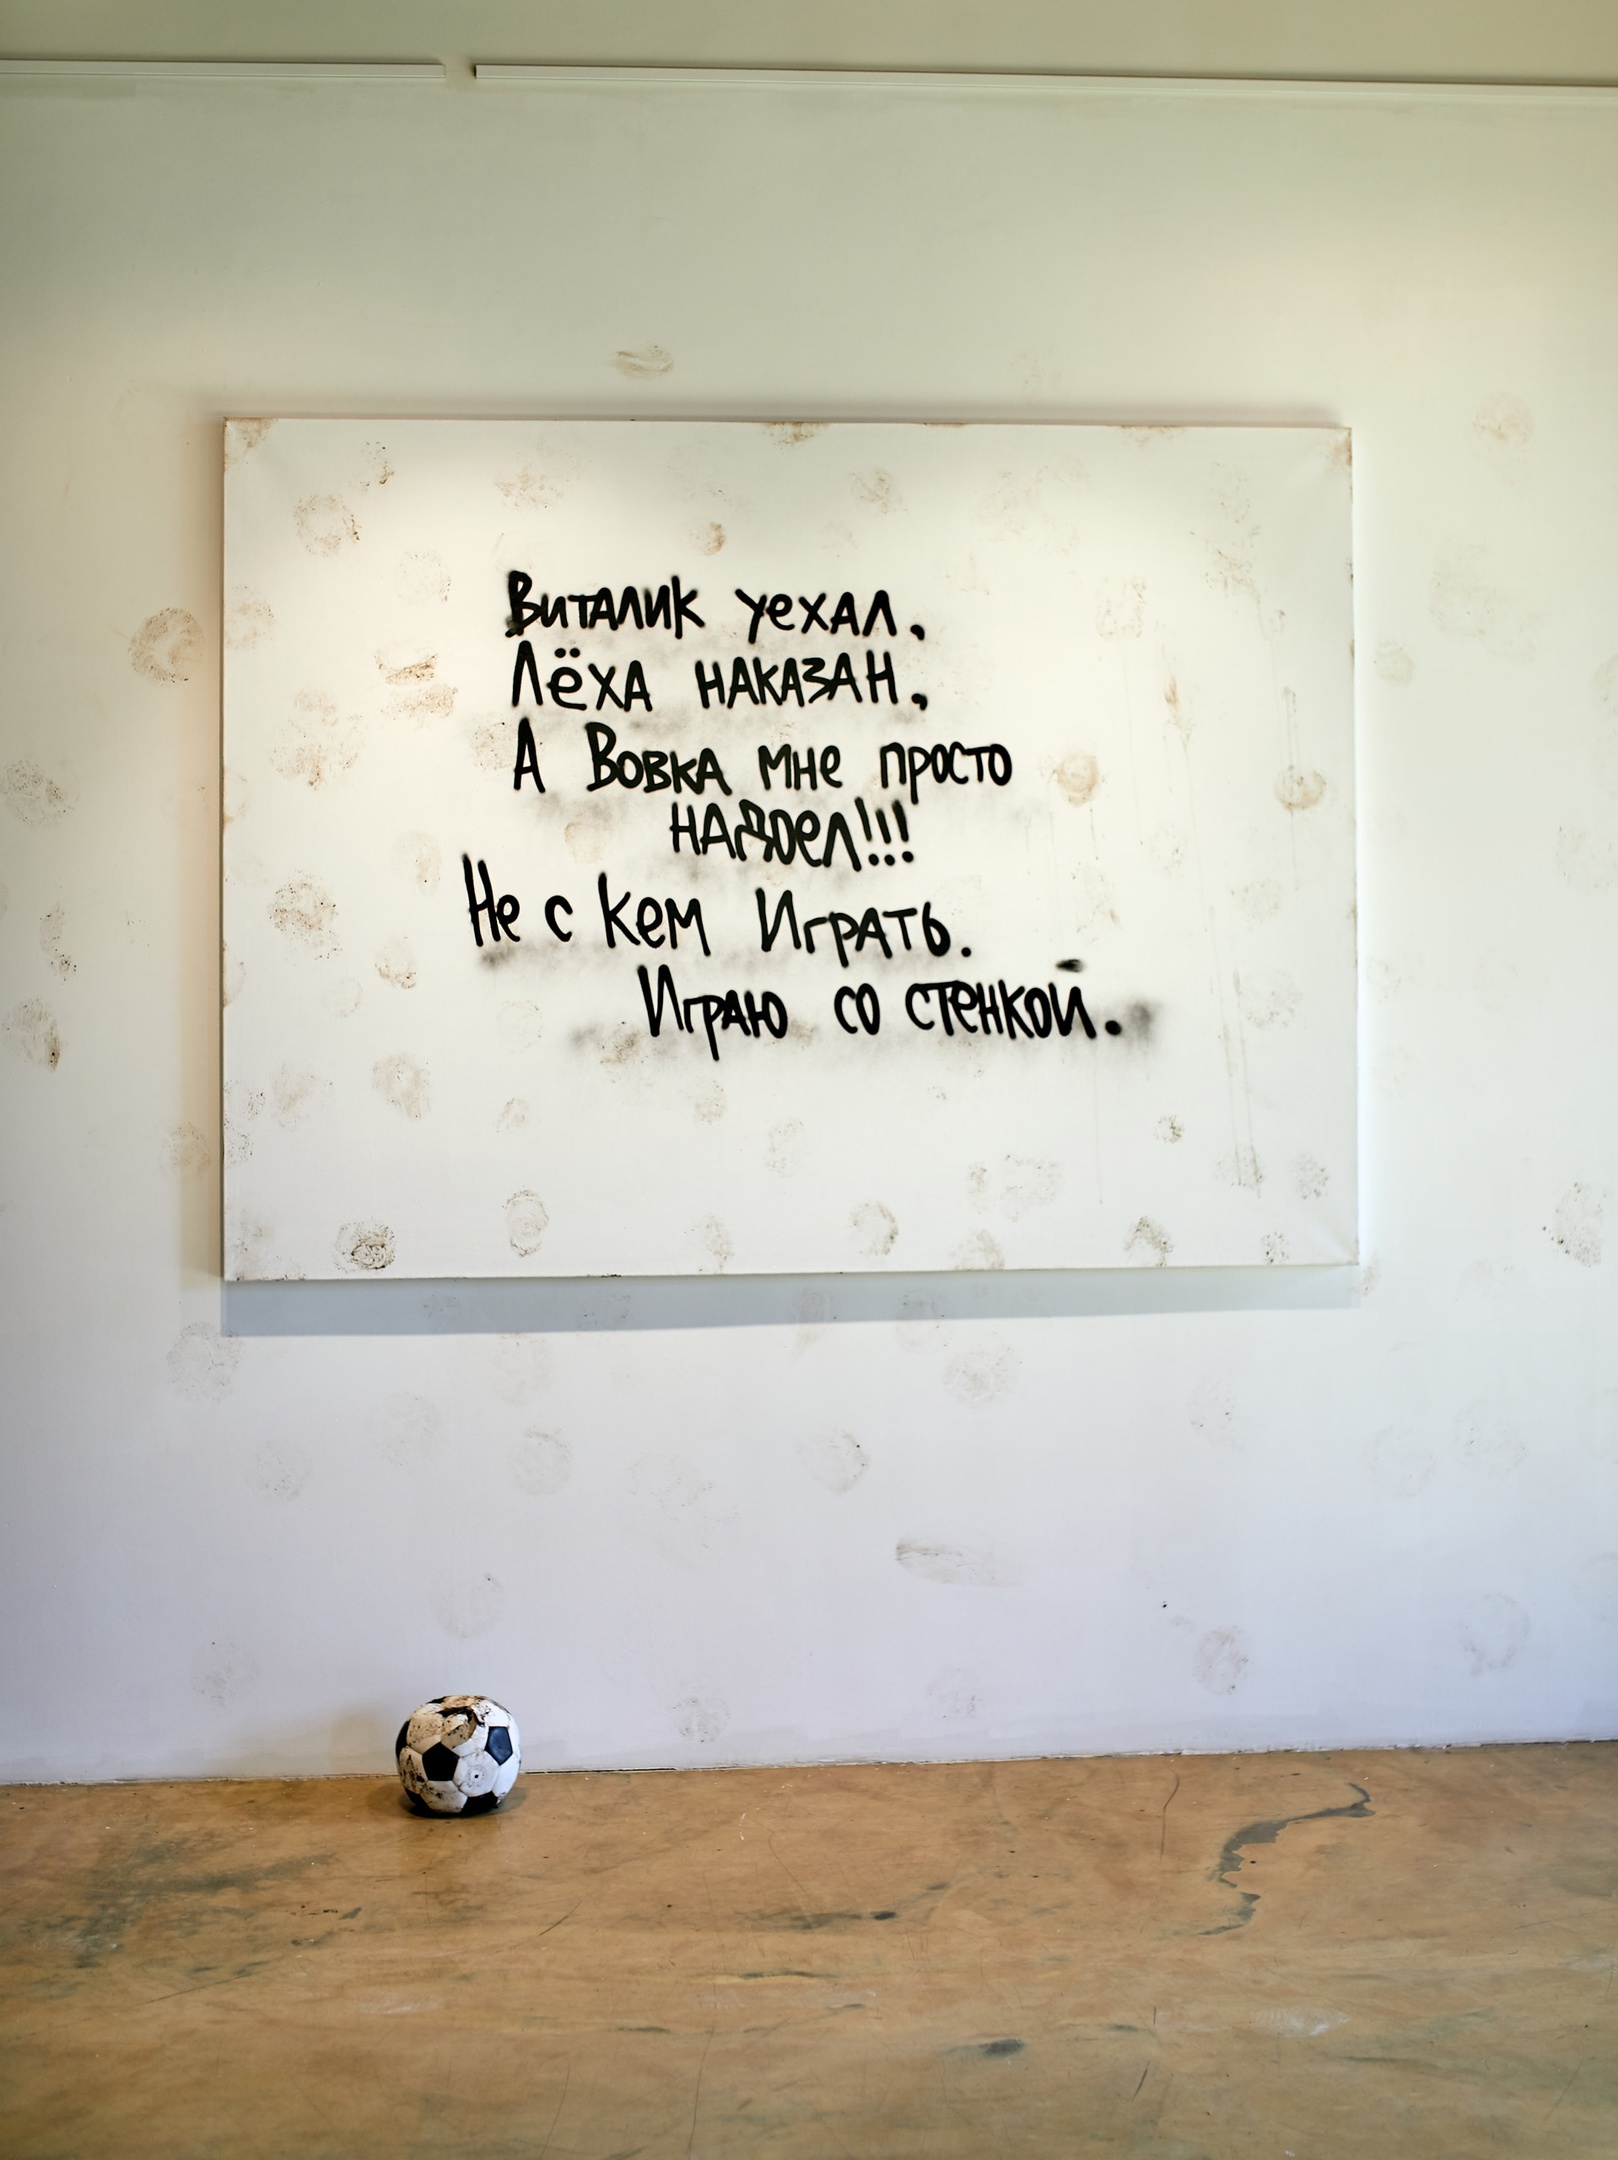 Виталик уехал,
Лёха наказан,
А Вовка мне просто
надоел!!!
Не с кем Играть.
Играю со стенкой.